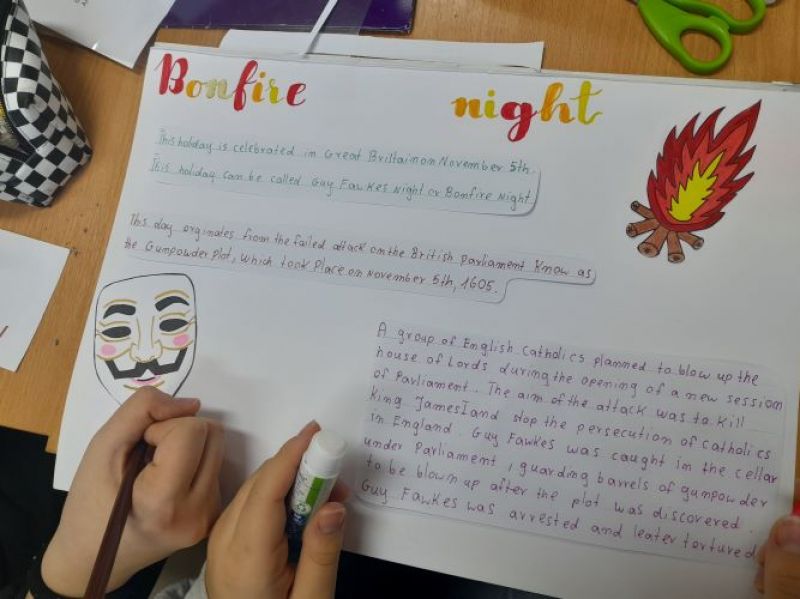 Bonfire night
This holiday is celebrated in Great Bristain on November 5th.
This holiday can be called Guy Fawkes Night or Bonfire Night.
This day orginates from the failed attack on the British parliament know as
the Gunpowder Plot, which took Place on November 5th, 1605.
A group of English Catholics planned to blow up the
house of Lords during the opening of a new session
of Parliament. The aim of the attack was to kill
King James I and stop the persecution of catholics
in England. Guy Fawkes was caught in the cellar
under Parliament, guarding barrels of gunpowder
to be blown up after the plot was discovered.
Guy Fawkes was arrested and leater tortured